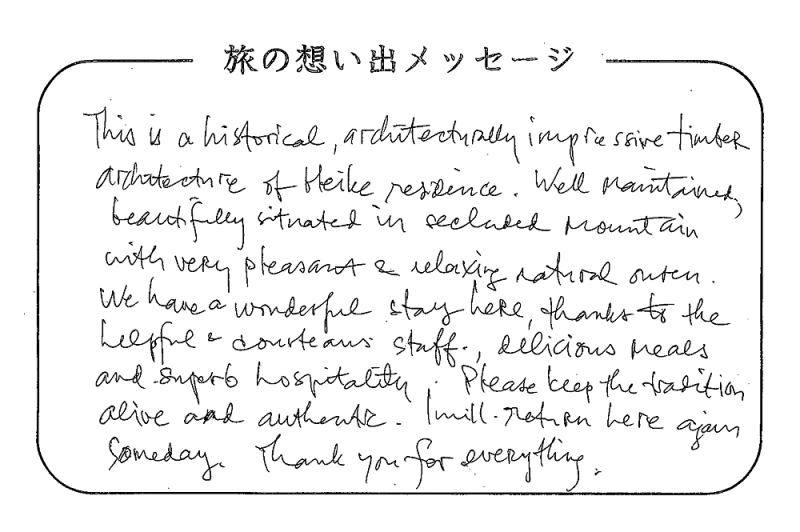 旅の想い出メッセージ
This is a historical, architecturally impressive timber
architecture of Heike residence. Well maintained,
beautifully situated in secluded mountain
with very pleasant & relaxing natural onsen.
We have a wonderful stay here, thanks to the
helpful & courteous staff., delicious meals
and superb hospitality. Please keep the tradition
alive and authentic. I will return here again
someday. Thank you for everything.